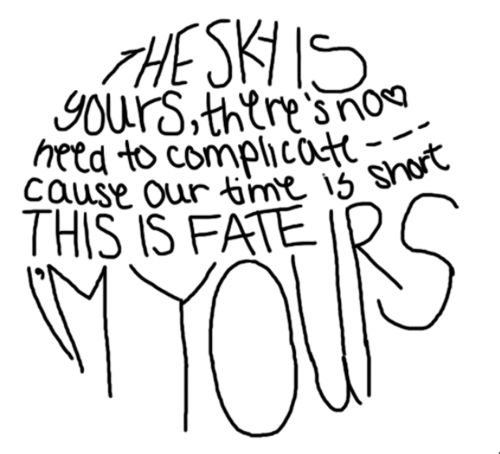 THE SKY IS
yours, there's no
need to complicate ----
cause our time is short
THIS IS FATE
I'M YOURS